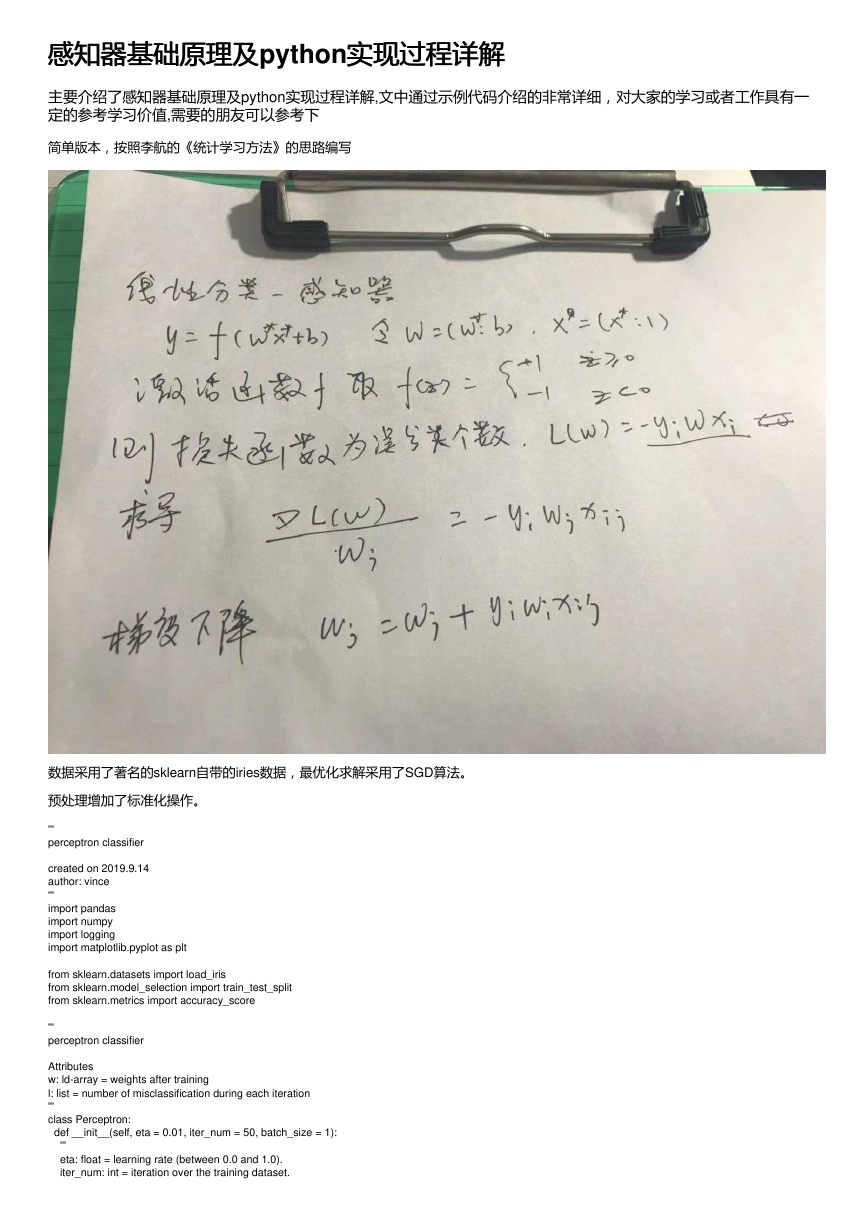 感知器基础原理及python实现过程详解
主要介绍了感知器基础原理及python实现过程详解,文中通过示例代码介绍的非常详细，对大家的学习或者工作具有一
定的参考学习价值,需要的朋友可以参考下
简单版本，按照李航的《统计学习方法》的思路编写
线性分类-感知器
y = f(w*x*+b) 令 W=(w*:b). x=(x*:1)
激活函数f 取 f(z) = { +1 z≥0
-1 z<0
则 损失函数为误分类个数. L(w) = -yiWxi
求导 ∇L(w) / Wj = -yiWjxij
梯度下降 Wj = Wj + yiWixij
数据采用了著名的sklearn自带的iries数据，最优化求解采用了SGD算法。
预处理增加了标准化操作。
'''
perceptron classifier
created on 2019.9.14
author: vince
'''
import pandas
import numpy
import logging
import matplotlib.pyplot as plt
from sklearn.datasets import load_iris
from sklearn.model_selection import train_test_split
from sklearn.metrics import accuracy_score
'''
perceptron classifier
Attributes
w: ld-array = weights after training
l: list = number of misclassification during each iteration
'''
class Perceptron:
def __init__(self, eta = 0.01, iter_num = 50, batch_size = 1):
'''
eta: float = learning rate (between 0.0 and 1.0).
iter_num: int = iteration over the training dataset.